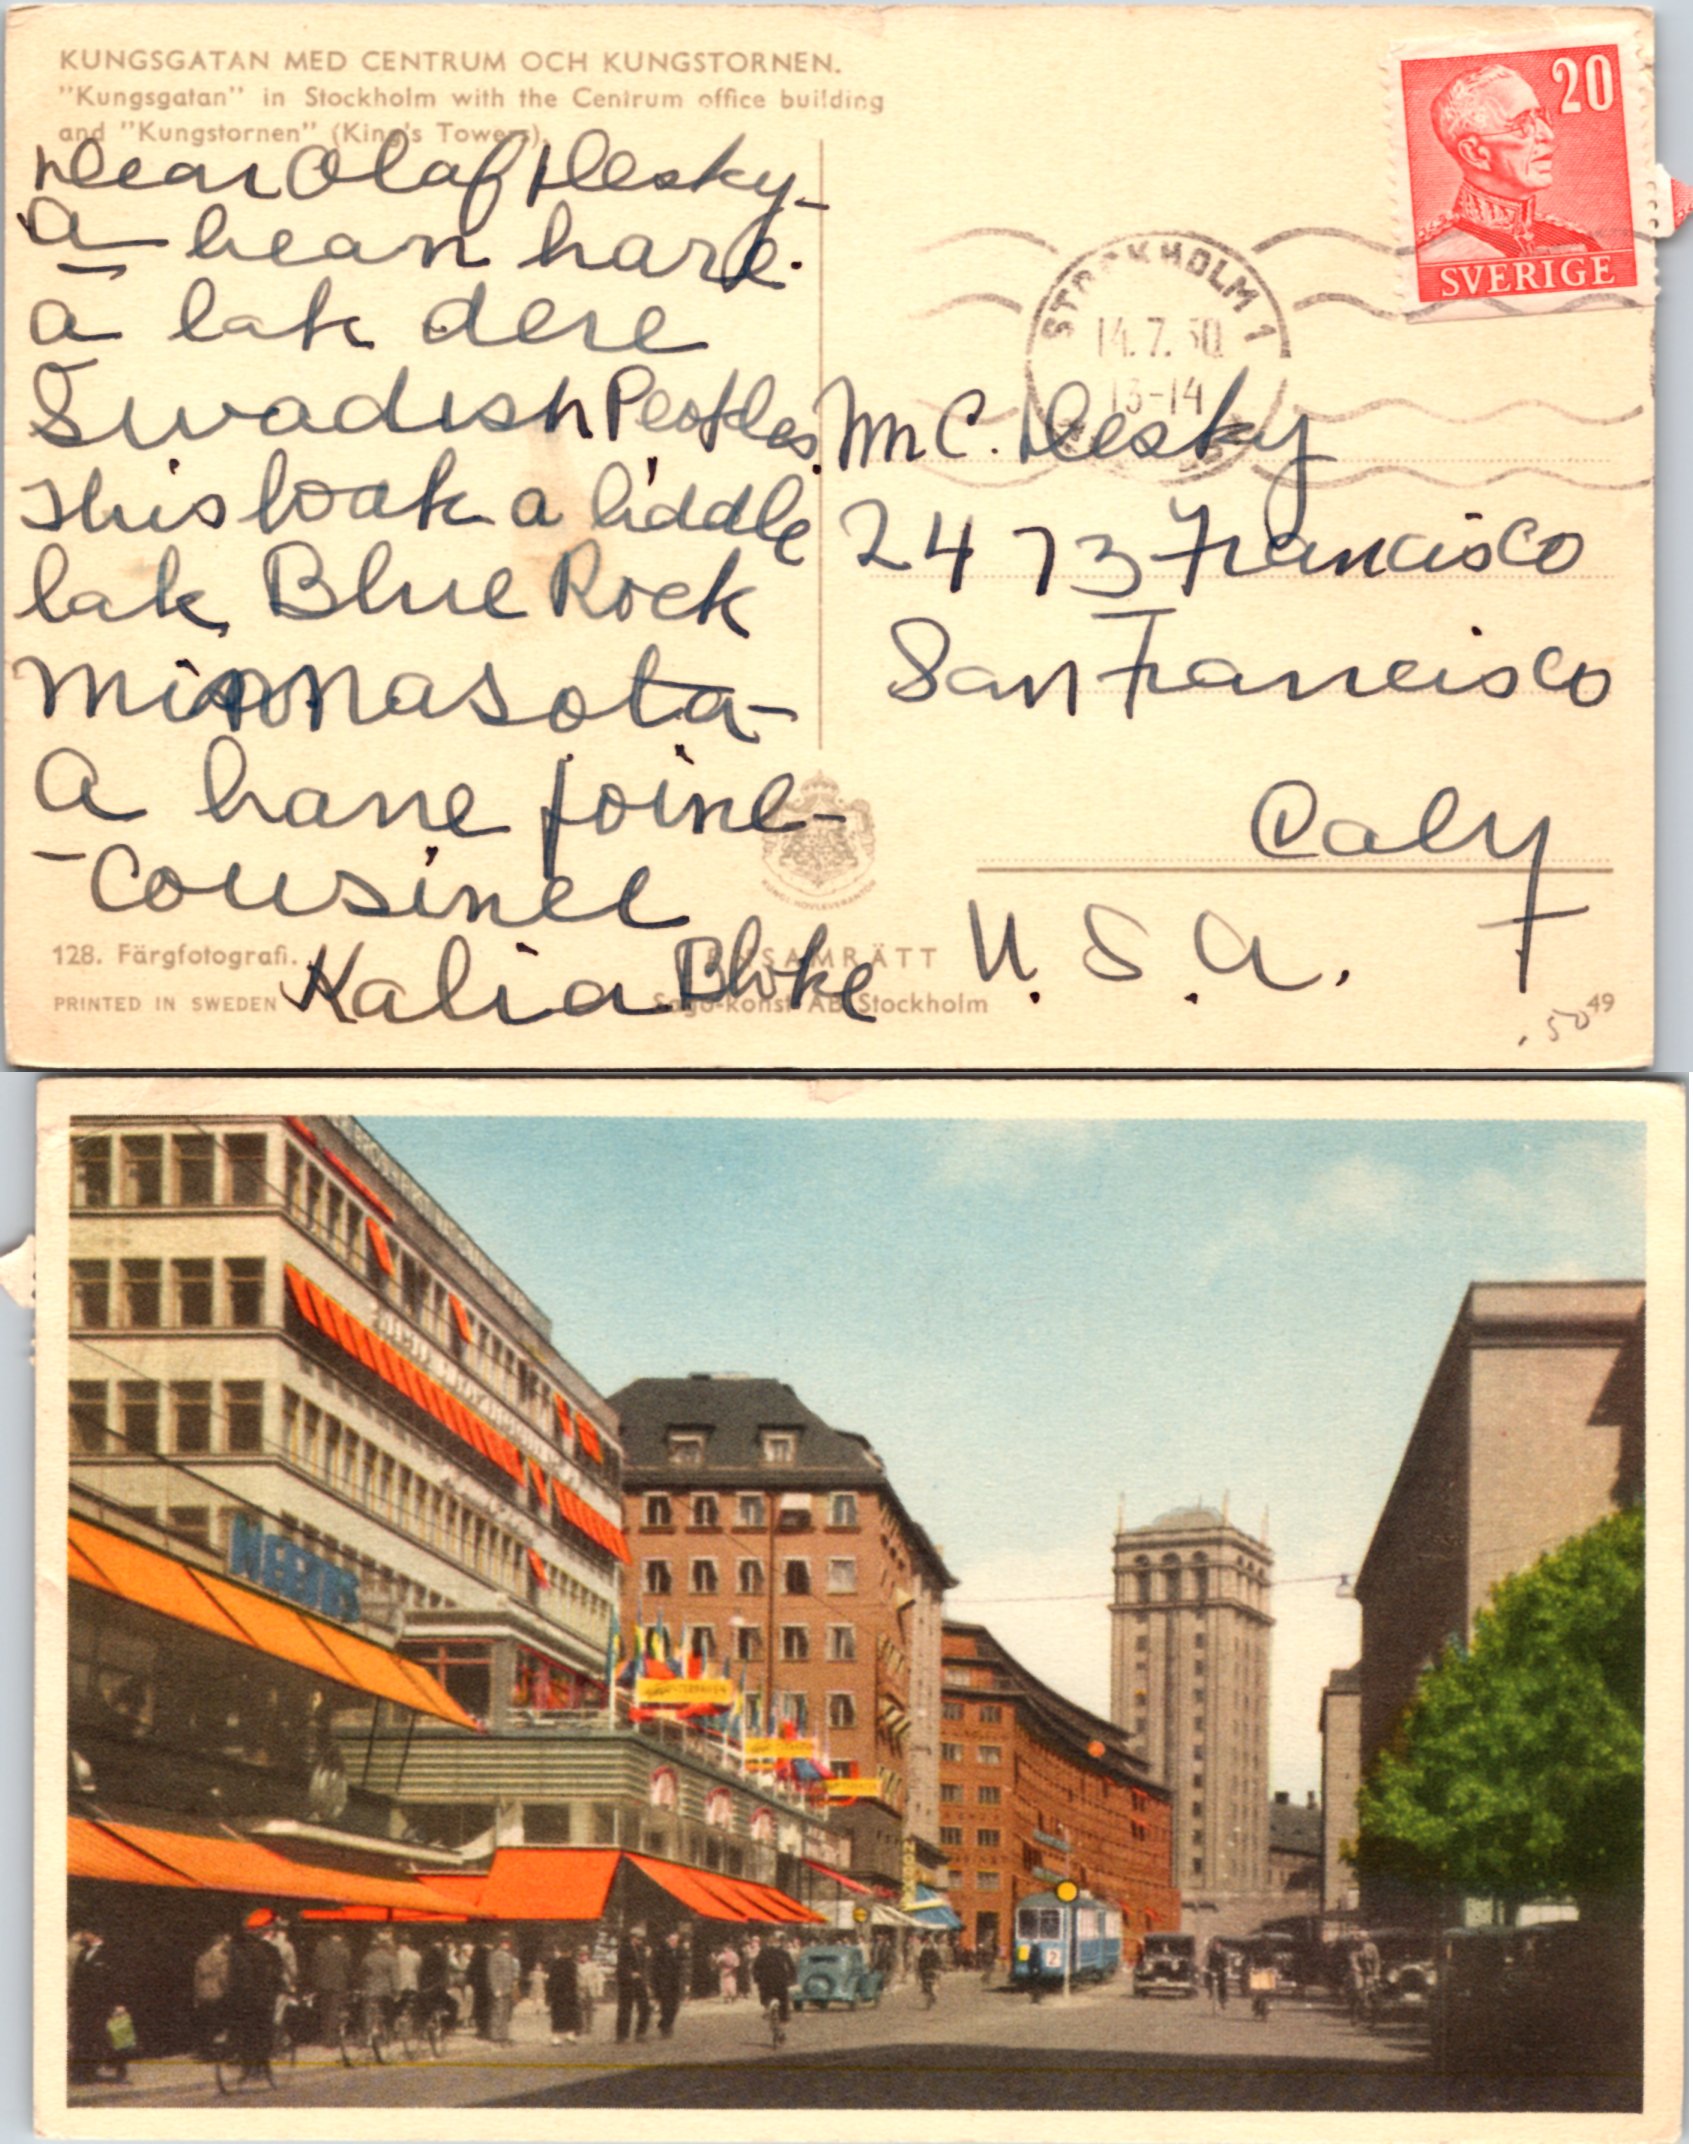 KUNGSGATAN MED CENTRUM OCH KUNGSTORNEN.
"Kungsgatan" in Stockholm with the Centrum office building
and "Kungstornen" (King's Towers).
Dear Olaf Hesky-
a bean hare.
a lak dere
Swadish Peoples
This look a liddle
lak Blue Rock
Minnasota-
a hane foine-
-Cousinee
Kalia Bloke
128. Färgfotografi.
ENSAMRÄTT
PRINTED IN SWEDEN
Sago-konst AB, Stockholm
49
.50
KUNGL. HOVLEVERANTÖR
20
SVERIGE
STOCKHOLM 1
14.7.50
13-14
Mr C. Hesky
2473 Francisco
San Francisco
Caly
U.S.A.
2